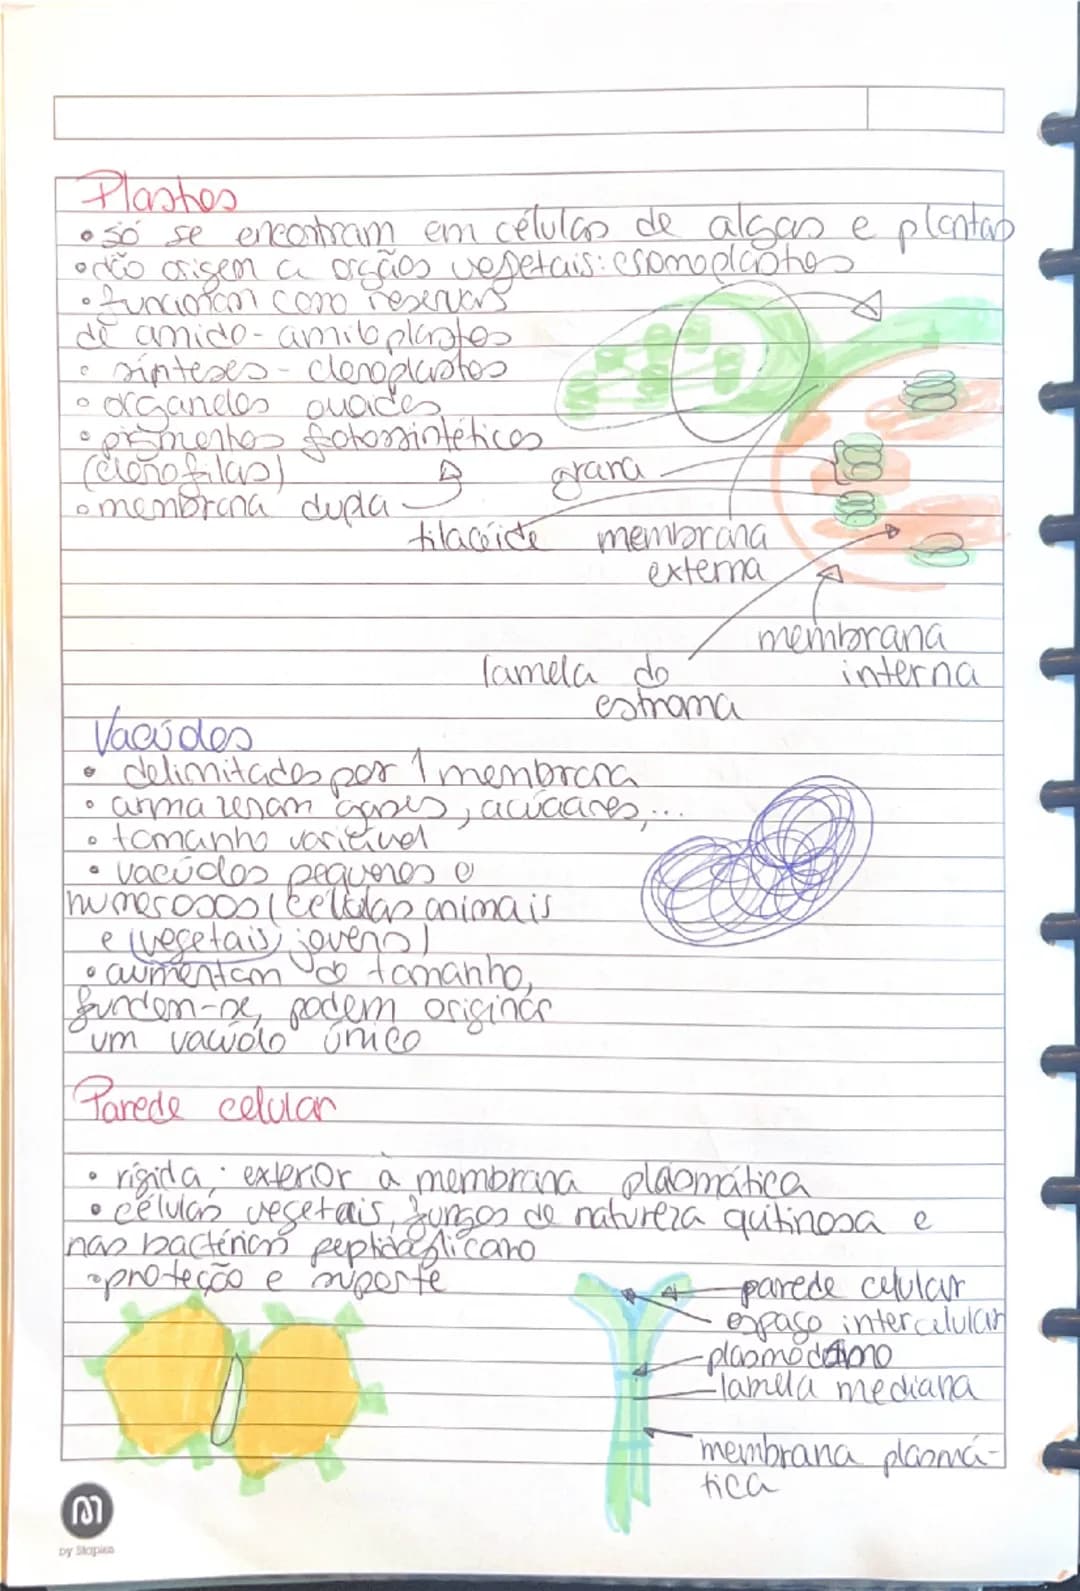 Plastos
• só se encontram em células de algas e plantas
• dão origem a orgãos vegetais: cromoplastos
• funcionam como reservas
de amido - amiloplastos
• sínteses - cloroplastos
• organelos ovoides
• pigmentos fotossintéticos
(clorofilas)
grana
• membrana dupla
tilacóide membrana
externa
membrana
interna
lamela do
estroma
Vacúolos
• delimitados por 1 membrana
• armazenam gases, açúcares,...
• tamanho variável
• vacúolos pequenos e
numerosos (células animais
e vegetais jovens)
• aumentam de tamanho,
fundem-se, podem originar
um vacúolo único
Parede celular
• rígida; exterior à membrana plasmática
• células vegetais, fungos de natureza quitinosa e
nas bactérias peptidoglicano
• proteção e suporte
parede celular
espaço intercelular
lamela mediana
membrana plasmá-
tica
by Staples